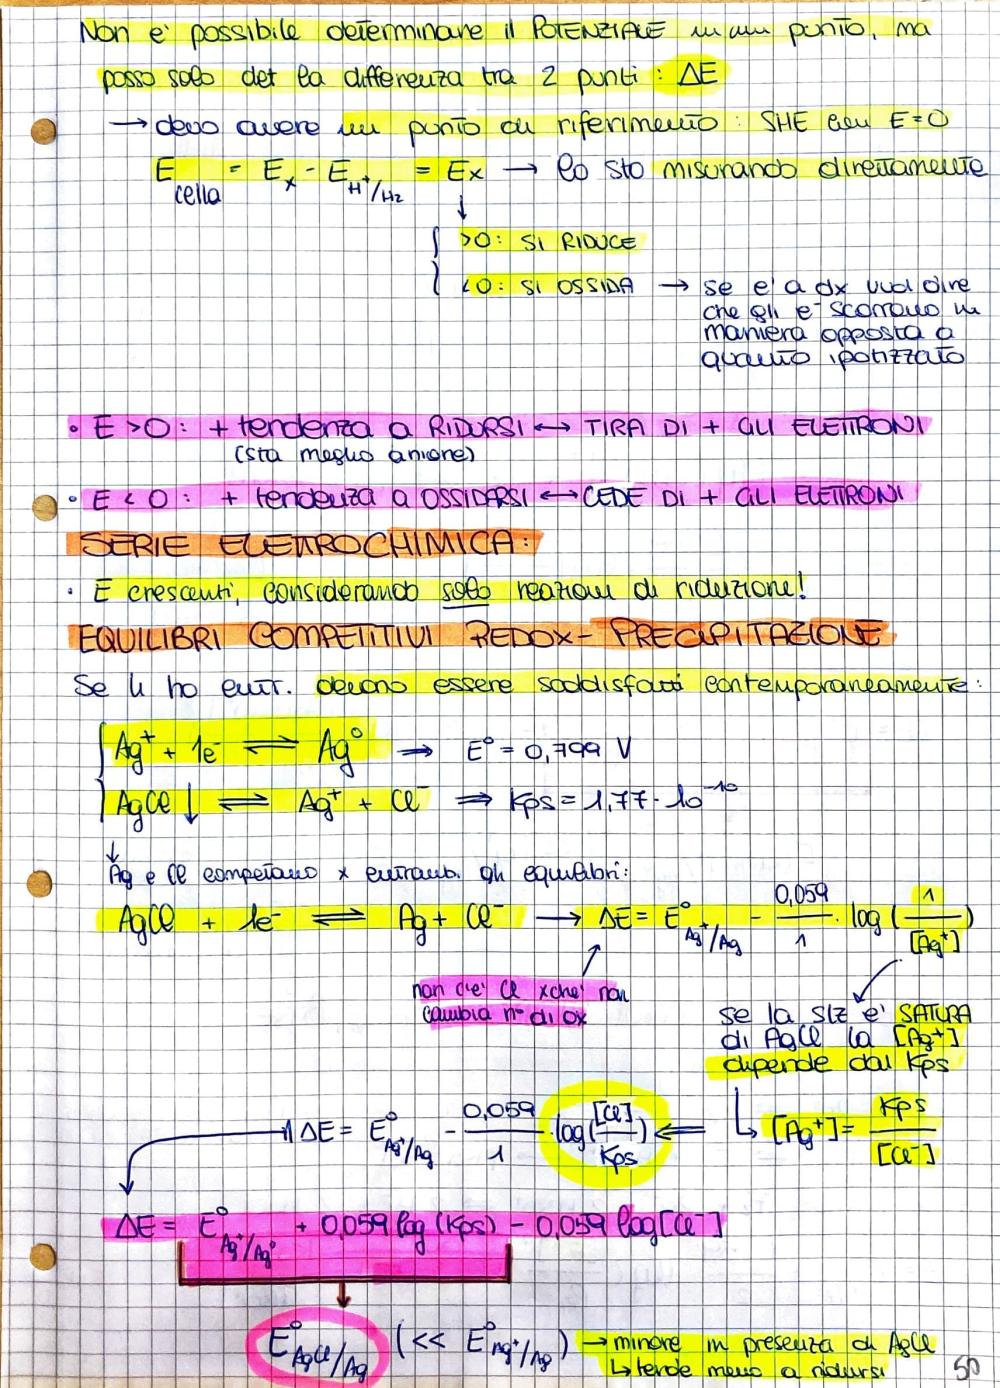 Non e' possibile determinare il POTENZIALE in un punto, ma
posso solo det la differenza tra 2 punti : ΔE
→ devo avere un punto di riferimento : SHE con E=0
E cella = Ex - E H⁺/H₂ = Ex → lo sto misurando direttamente
↓
{ >0: SI RIDUCE
{ <0: SI OSSIDA → se e' a dx vuol dire
che gli e⁻ scorrono in
maniera opposta a
quanto ipotizzato
• E >0: + tendenza a RIDURSI ↔ TIRA DI + GLI ELETTRONI
(sta meglio anione)
• E < 0: + tendenza a OSSIDARSI ↔ CEDE DI + GLI ELETTRONI
SERIE ELETTROCHIMICA:
• E crescenti, considerando solo reazioni di riduzione!
EQUILIBRI COMPETITIVI REDOX-PRECIPITAZIONE
Se li ho entr. devono essere soddisfatti contemporaneamente:
{ Ag⁺ + 1e⁻ ⇌ Ag⁰ → E° = 0,799 V
{ AgCl ↓ ⇌ Ag⁺ + Cl⁻ ⇒ Kps = 1,77 · 10⁻¹⁰
↓
Ag e Cl competono x entramb. gli equilibri:
AgCl + 1e⁻ ⇌ Ag + Cl⁻ → ΔE = E° Ag⁺/Ag - 0,059/1 · log (1/[Ag⁺])
non c'e' Cl xche' non
cambia n° di ox
se la slz e' SATURA
di AgCl la [Ag⁺]
dipende dal Kps
↳ [Ag⁺] = Kps/[Cl⁻]
ΔE = E° Ag⁺/Ag - 0,059/1 · log([Cl]/Kps) ⇐
ΔE = E° Ag⁺/Ag° + 0,059 log (Kps) - 0,059 log [Cl⁻]
↓
E° AgCl/Ag (<< E° Ag⁺/Ag) → minore in presenza di AgCl
↳ tende meno a ridursi
50